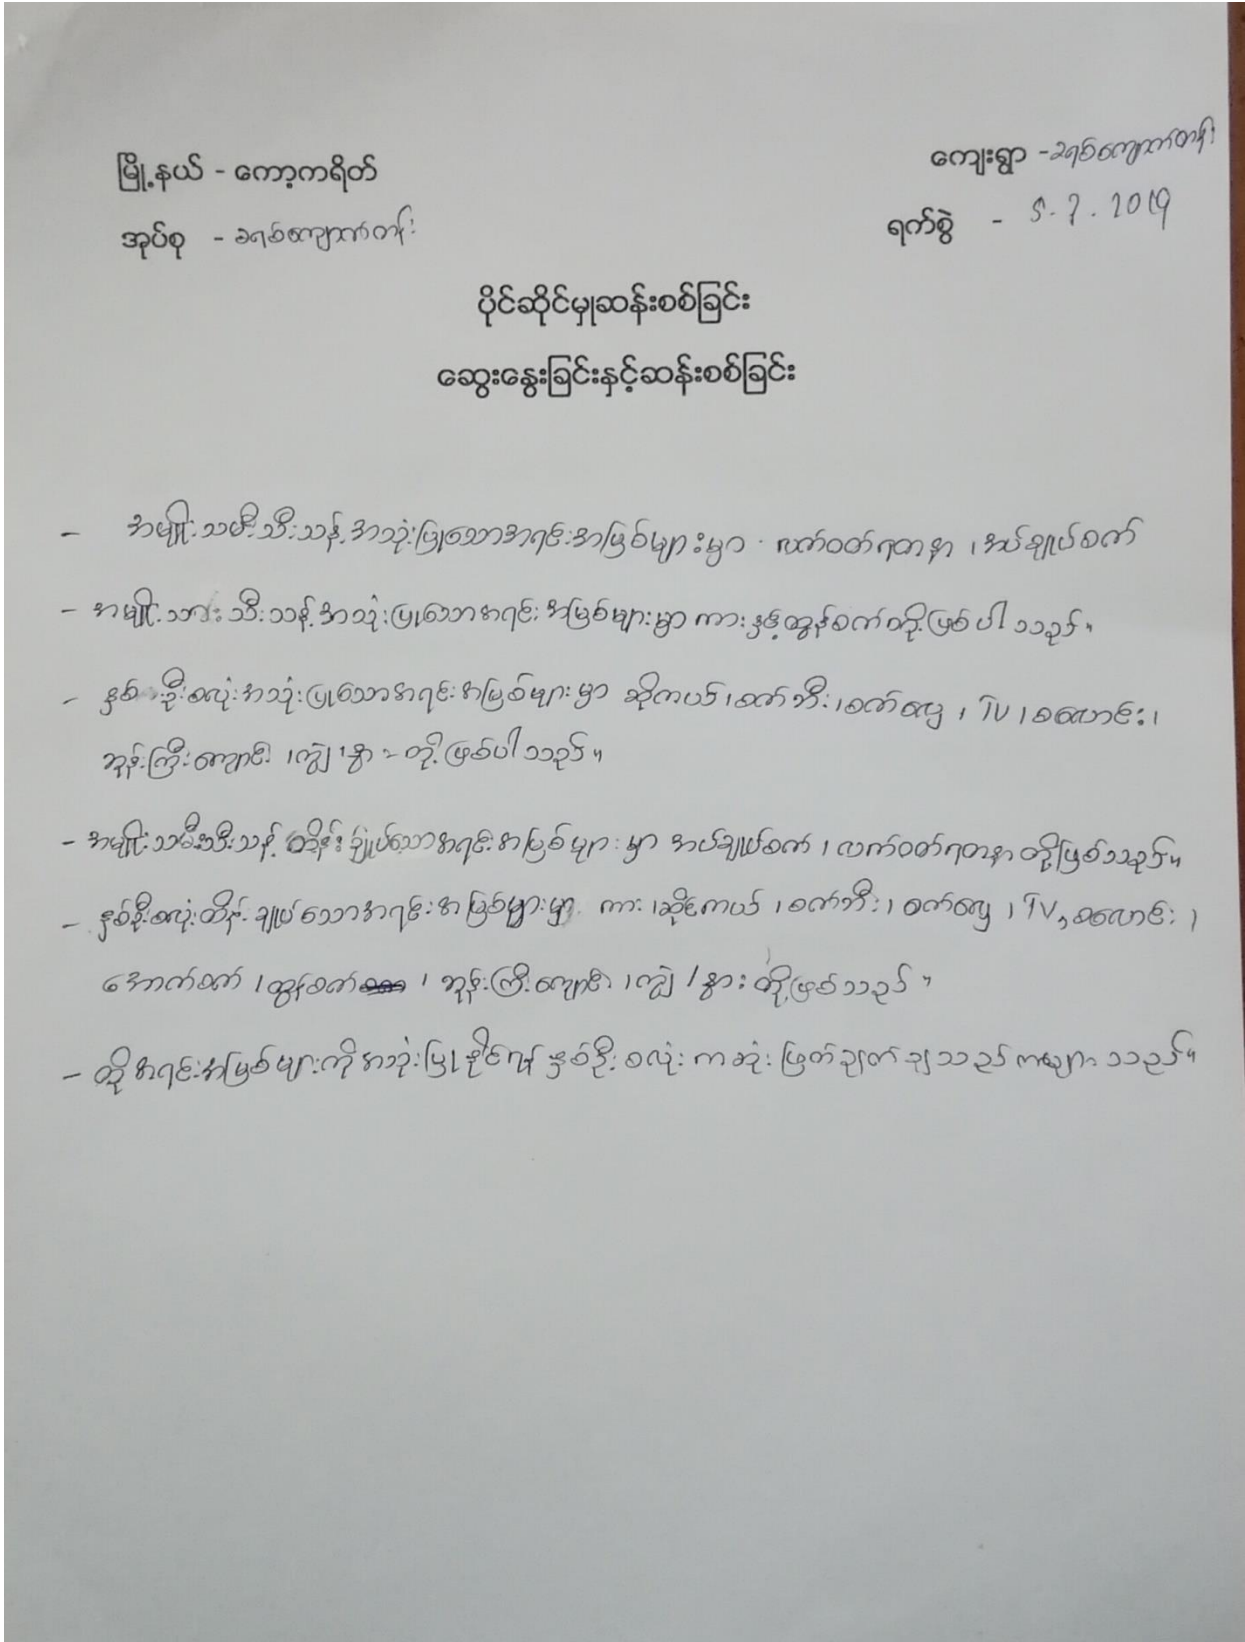 မြို့နယ် - ကော့ကရိတ်
ကျေးရွာ - ခရစ်ကျောက်တန်း
အုပ်စု - ခရစ်ကျောက်တန်း
ရက်စွဲ - 5.7.2019
ပိုင်ဆိုင်မှုဆန်းစစ်ခြင်း
ဆွေးနွေးခြင်းနှင့်ဆန်းစစ်ခြင်း
- အမျိုးသမီးသီးသန့်အသုံးပြုသောအရင်းအမြစ်များမှာ လက်ဝတ်ရတနာ ၊ အပ်ချုပ်စက်
- အမျိုးသားသီးသန့်အသုံးပြုသောအရင်းအမြစ်များမှာ ကားနှင့်ထွန်စက်တို့ဖြစ်ပါသည်။
- နှစ်ဦးစလုံးအသုံးပြုသောအရင်းအမြစ်များမှာ ဆိုကယ် ၊ စက်ဘီး ၊ စက်လှေ ၊ TV ၊ စလောင်း ၊
ဘုန်းကြီးကျောင်း ၊ ကျွဲ ၊ နွား တို့ဖြစ်ပါသည်။
- အမျိုးသမီးသီးသန့် ထိန်းချုပ်သောအရင်းအမြစ်များမှာ အပ်ချုပ်စက် ၊ လက်ဝတ်ရတနာတို့ဖြစ်သည်။
- နှစ်ဦးစလုံးထိန်းချုပ်သောအရင်းအမြစ်များမှာ ကား ၊ ဆိုင်ကယ် ၊ စက်ဘီး ၊ စက်လှေ ၊ TV ၊ စလောင်း ၊
အောက်စက် ၊ ထွန်စက် ၊ ဘုန်းကြီးကျောင်း ၊ ကျွဲ / နွား တို့ဖြစ်သည်။
- ထိုအရင်းအမြစ်များကိုအသုံးပြုနိုင်ရန် နှစ်ဦးစလုံးကဆုံးဖြတ်ချက်ချသည်ကများသည်။